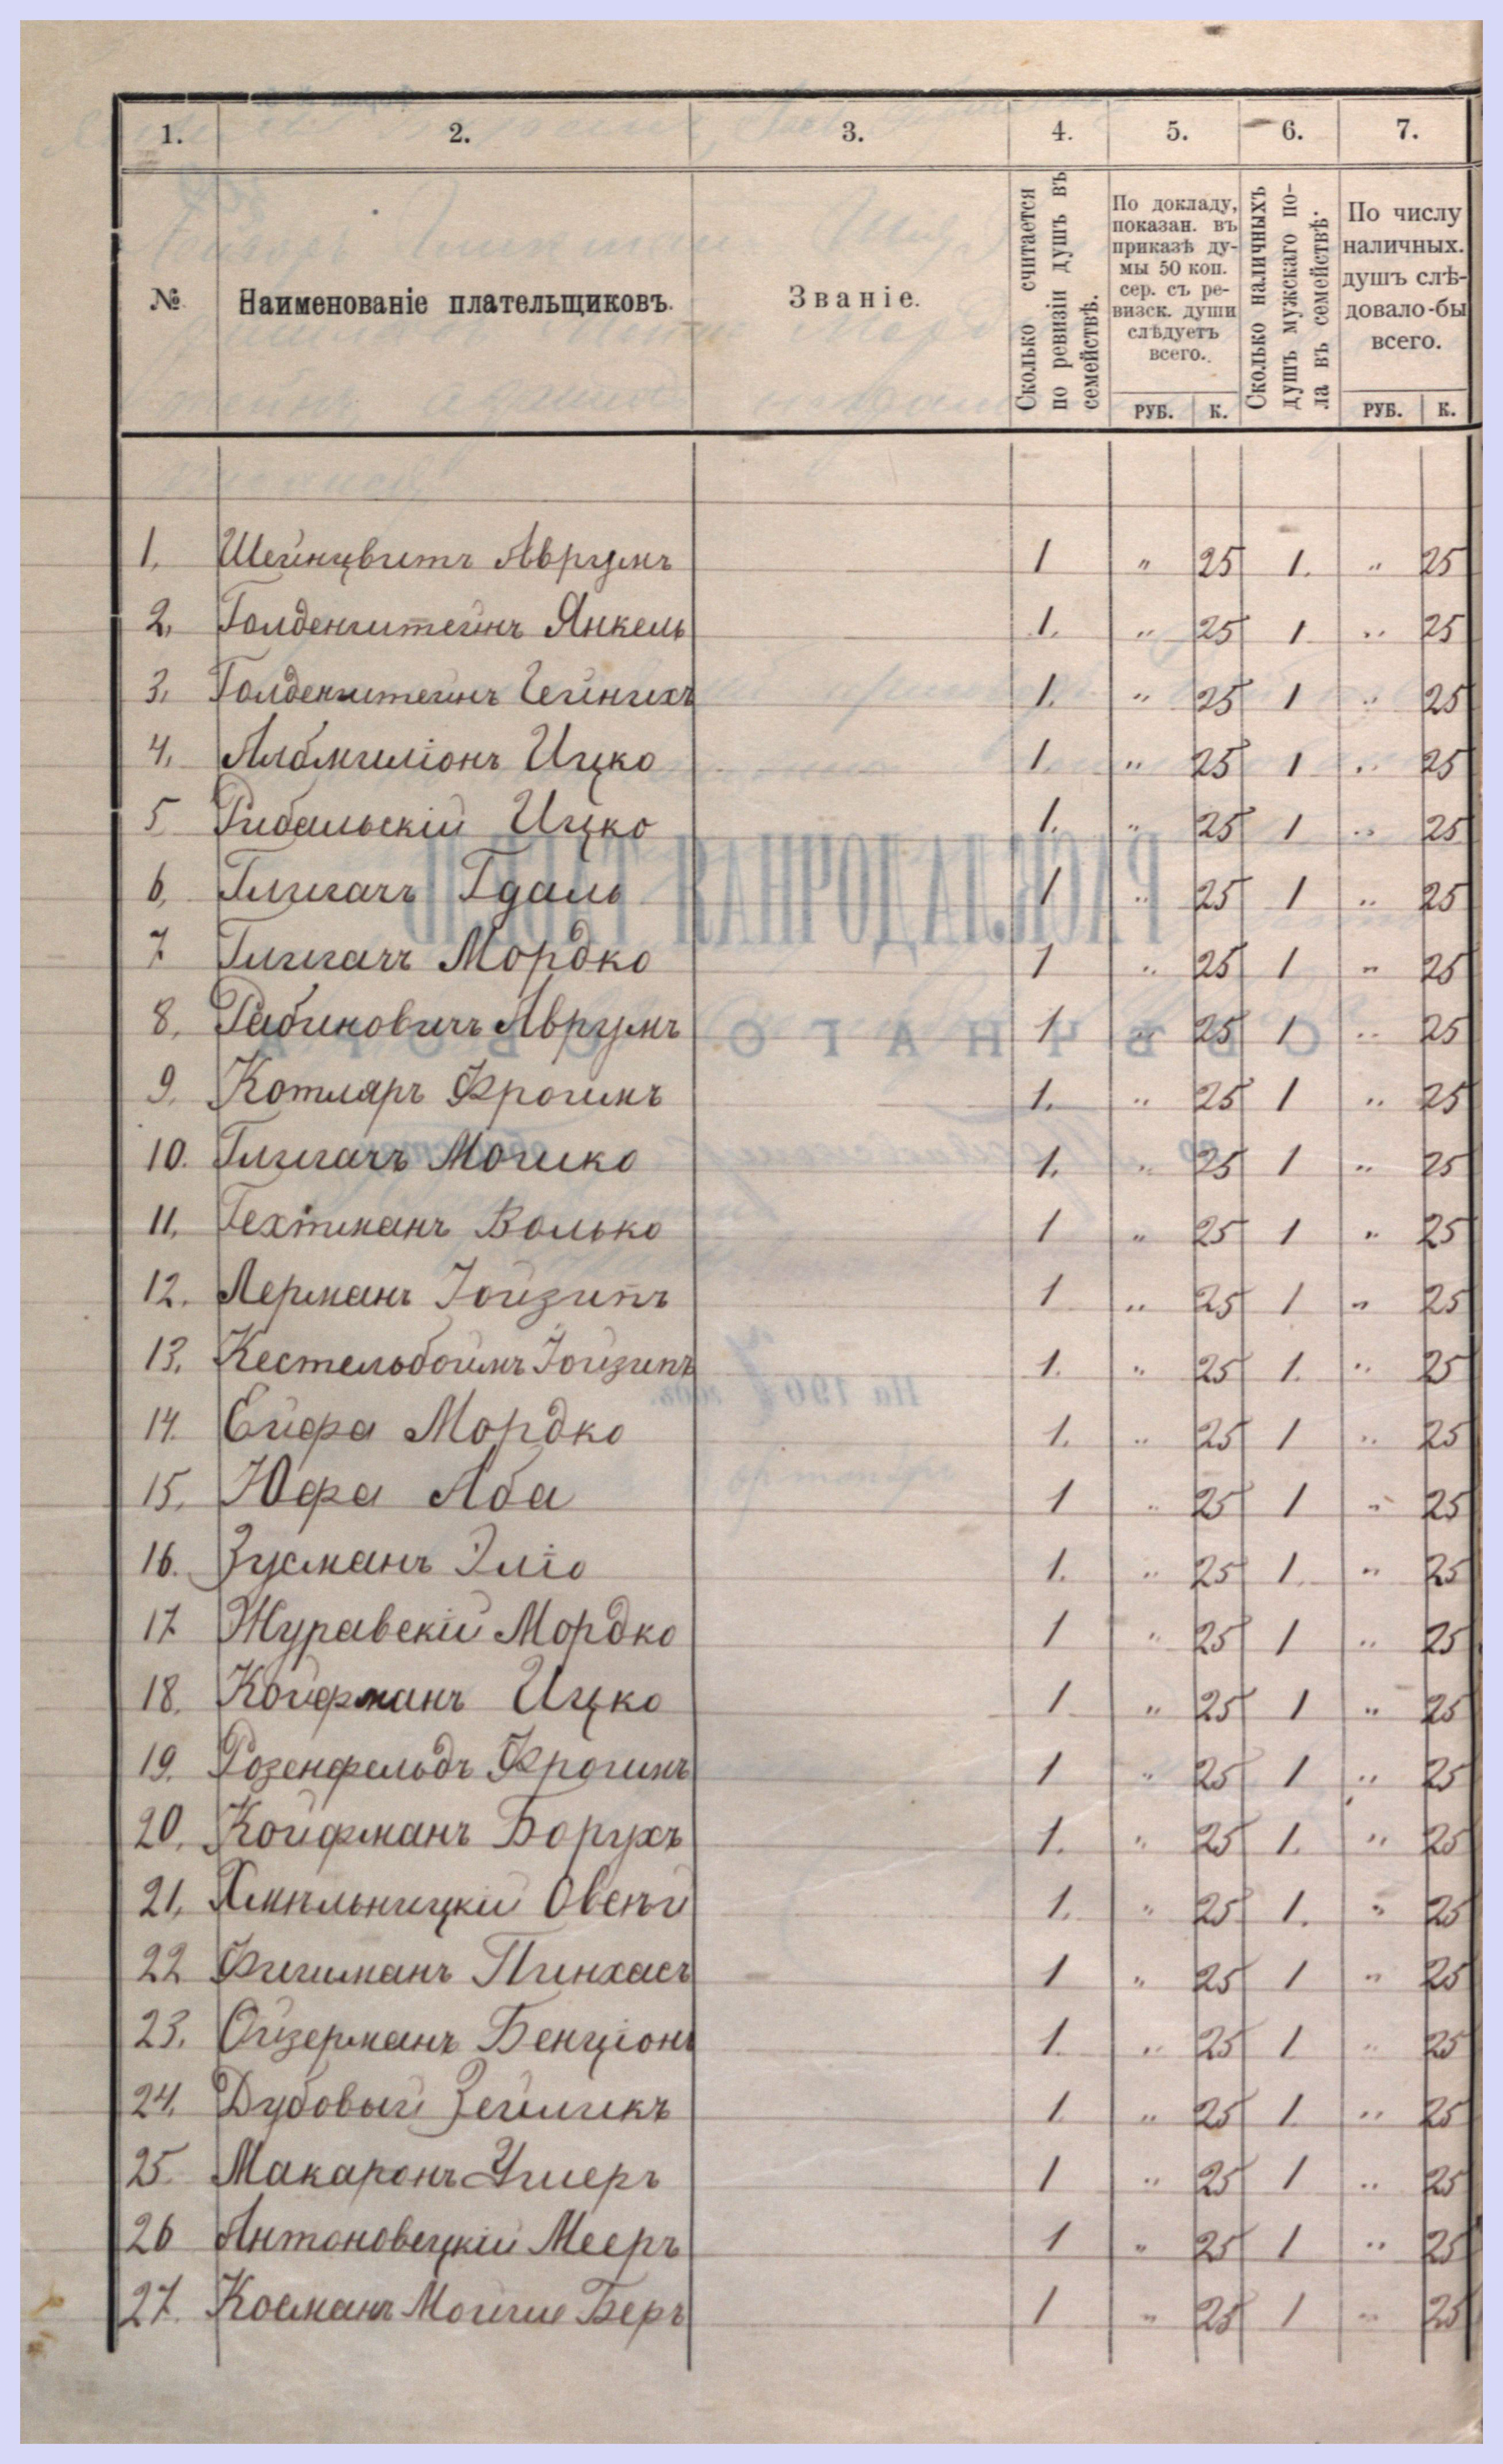 1. 2. 3. 4. 5. 6. 7.
№ Наименованіе плательщиковъ. Званіе. Сколько считается по ревизіи душъ въ семействѣ. По докладу, показан. въ приказѣ думы 50 коп. сер. съ ревизск. души слѣдуетъ всего. Сколько наличныхъ душъ мужскаго пола въ семействѣ. По числу наличныхъ. душъ слѣдовало-бы всего.
РУБ. К. РУБ. К.
1, Шейнцвитъ Аврумъ 1 " 25 1. " 25
2, Голденштейнъ Янкель 1. " 25 1 " 25
3, Голденштейнъ 1. " 25 1 " 25
4, Ицко 1. " 25 1 " 25
5 Рибальскій Ицко 1. " 25 1 " 25
6, Глигачъ Гдаль 1 " 25 1 " 25
7 Глигачъ Мордко 1 " 25 1 " 25
8, Рабиновичъ Аврумъ 1 " 25 1 " 25
9, Котляръ Фроимъ 1. " 25 1 " 25
10. Глигачъ Мошко 1. " 25 1 " 25
11, Гехтманъ Волько 1 " 25 1 " 25
12. Лерманъ Іойзипъ 1 " 25 1 " 25
13, Кестельбоймъ Іойзипъ 1. " 25 1. " 25
14. Ейфа Мордко 1. " 25 1 " 25
15, Юфа Аба 1 " 25 1 " 25
16. Зусманъ Эліо 1. " 25 1. " 25
17 Журавскій Мордко 1 " 25 1 " 25
18, Койфманъ Ицко 1 " 25 1 " 25
19. Розенфельдъ Фроимъ 1 " 25 1 " 25
20, Койфманъ Борухъ 1. " 25 1. " 25
21, Хмѣльницкій Овсѣй 1. " 25 1. " 25
22 Фишманъ Пинхасъ 1 " 25 1 " 25
23. Ойзерманъ Бенціонъ 1. " 25 1 " 25
24. Дубовый Зейликъ 1. " 25 1. " 25
25. Макаронъ Ушеръ 1 " 25 1 " 25
26 Антоновецкій Мееръ 1 " 25 1 " 25
27. Косманъ Мойше Беръ 1 " 25 1 " 25